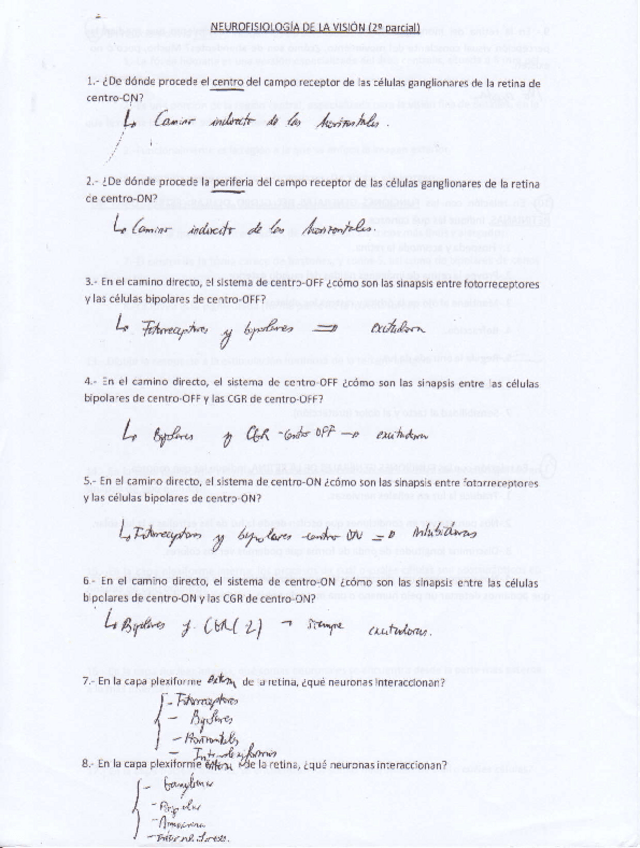 NEUROFISIOLOGÍA DE LA VISIÓN (2º parcial)
1.- ¿De dónde procede el centro del campo receptor de las células ganglionares de la retina de
centro-ON?
↳ Camino indirecto de las horizontales.
2.- ¿De dónde procede la periferia del campo receptor de las células ganglionares de la retina
de centro-ON?
↳ Camino indirecto de las horizontales.
3.- En el camino directo, el sistema de centro-OFF ¿cómo son las sinapsis entre fotorreceptores
y las células bipolares de centro-OFF?
↳ Fotorreceptores y bipolares ⇒ excitadora
4.- En el camino directo, el sistema de centro-OFF ¿cómo son las sinapsis entre las células
bipolares de centro-OFF y las CGR de centro-OFF?
↳ Bipolares y CGR -centro OFF → excitadora
5.- En el camino directo, el sistema de centro-ON ¿cómo son las sinapsis entre fotorreceptores
y las células bipolares de centro-ON?
↳ Fotorreceptores y bipolares centro ON ⇒ inhibidoras
6.- En el camino directo, el sistema de centro-ON ¿cómo son las sinapsis entre las células
bipolares de centro-ON y las CGR de centro-ON?
↳ Bipolares y CGR (2) → siempre excitadoras.
7.- En la capa plexiforme externa de la retina, ¿qué neuronas interaccionan?
- Fotorreceptores
- Bipolares
- Horizontales
- Interplexiformes
8.- En la capa plexiforme de la retina, ¿qué neuronas interaccionan?
- Ganglionar
- Bipolar
- Amacrina